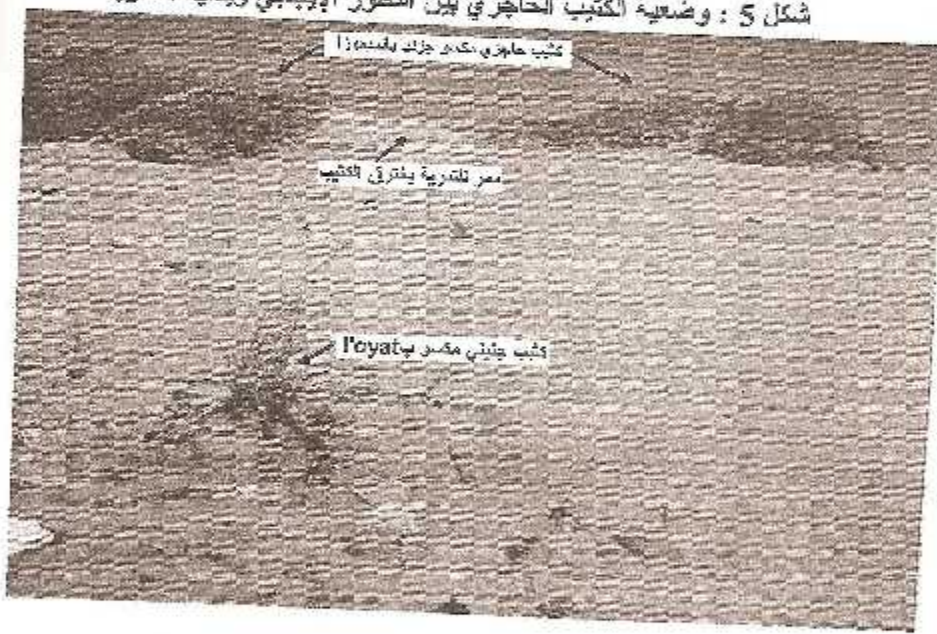 شكل 5 : وضعية الكثيب الحاجزي بين التطور الإيجابي
كثيب حاجزي مكسو جزئيا
ممر للتذرية يخترق الكثيب
كثيب جنيني مكسو ب l'oyat